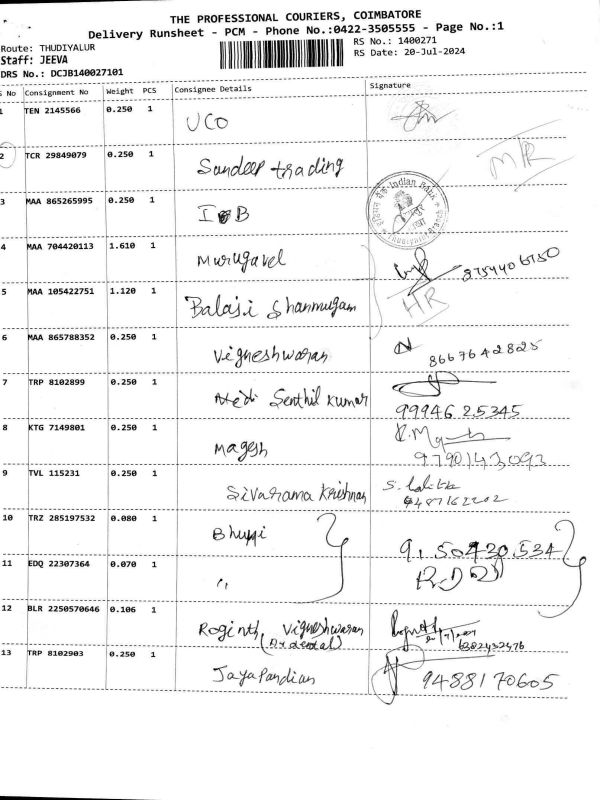 THE PROFESSIONAL COURIERS, COIMBATORE
Delivery Runsheet - PCM - Phone No.:0422-3505555 - Page No.:1
Route: THUDIYALUR
RS No.: 1400271
Staff: JEEVA
RS Date: 20-Jul-2024
DRS No.: DCJB140027101
S No Consignment No Weight PCS Consignee Details Signature
1 TEN 2145566 0.250 1 UCO
2 TCR 29849079 0.250 1 Sandeep trading
3 MAA 865265995 0.250 1 IOB Indian Bank
4 MAA 704420113 1.610 1 Murugavel 8754406750
5 MAA 105422751 1.120 1 Balaji Shanmugam
6 MAA 865788352 0.250 1 Vigneshwaran 8667642825
7 TRP 8102899 0.250 1 Senthil Kumar 99946 25345
8 KTG 7149801 0.250 1 Magesh 9790143093
9 TVL 115231 0.250 1 Sivarama Krishnan S. Lalitha
10 TRZ 285197532 0.080 1 Bhuppi 9150420534
11 EDQ 22307364 0.070 1 "
12 BLR 2250570646 0.106 1 Roginth, Vigneshwaran
(Dr dental)
13 TRP 8102903 0.250 1 Jayapandian 9488170605